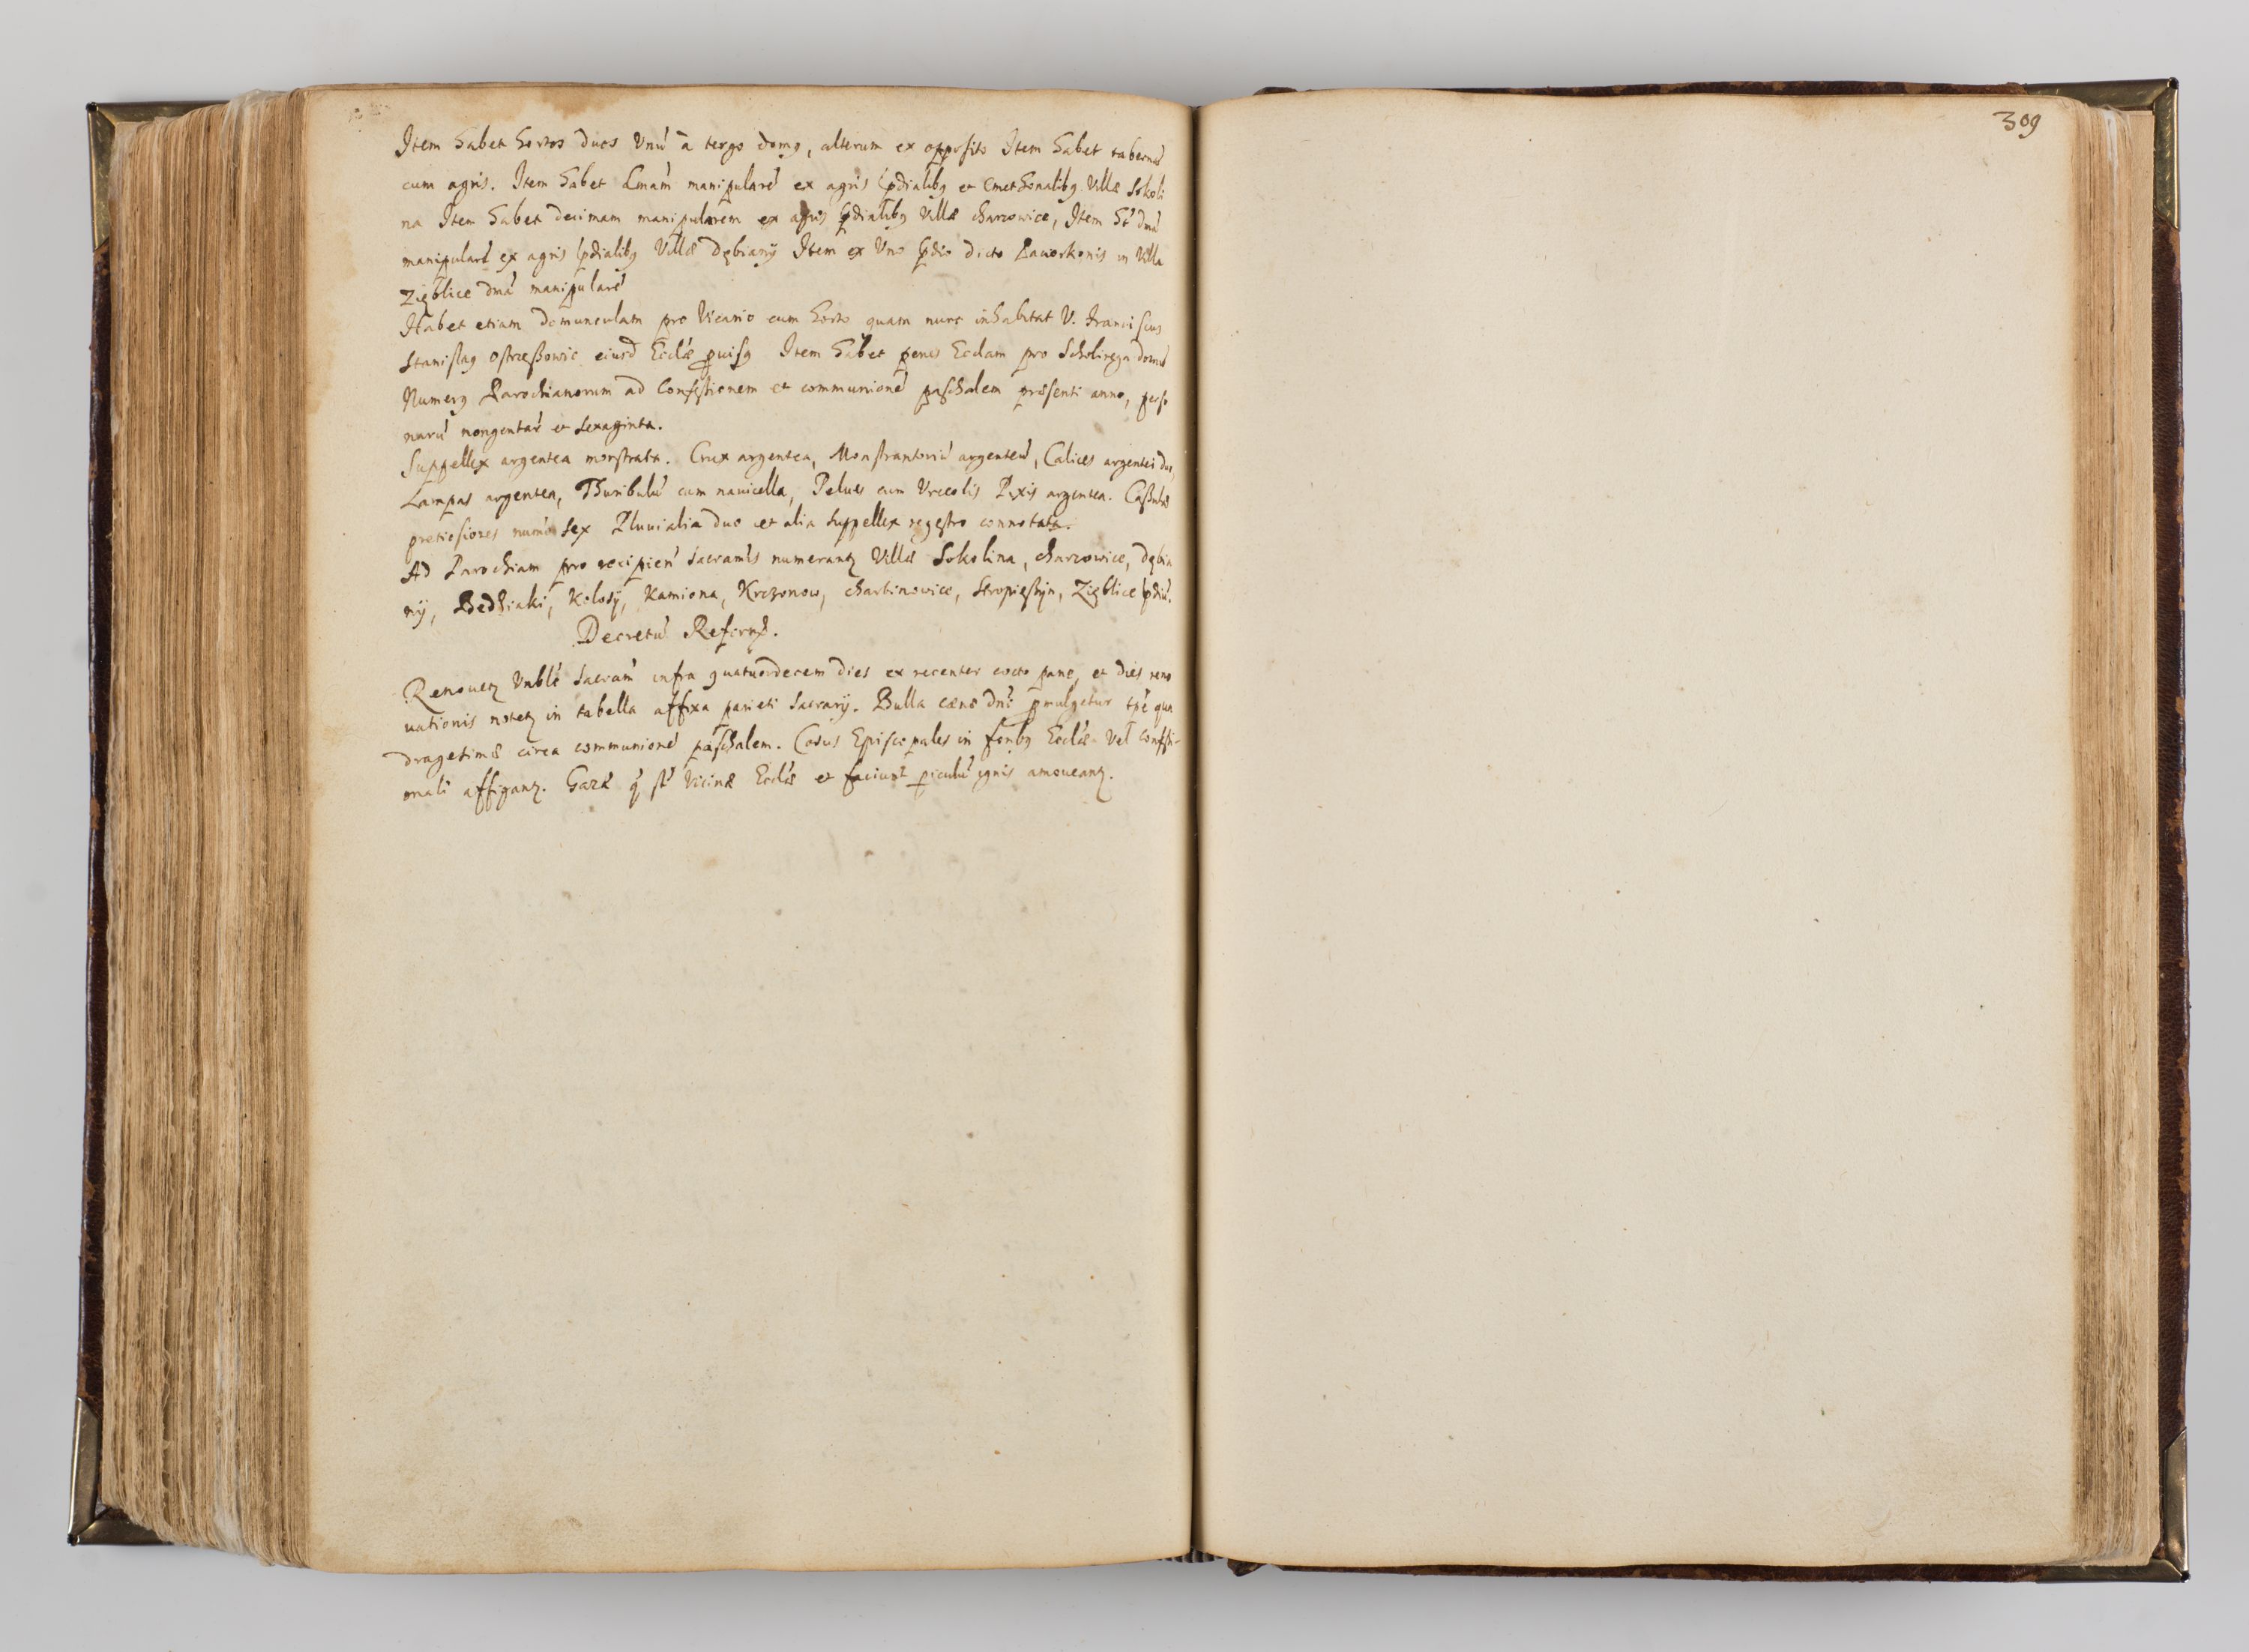 Item habet hortos duos Unu͂ à tergo domq, alterum ex opposito Item habet taberna͂
cum agris. Item habet manipulare͂ ex agris p̃dialibq et Cmethonalibq Villæ Sokoli
na Item habet decimam manipularem ex agris p̃dialibq Villæ charzowice, Item h͂t dma͂
manipulare͂ ex agris p̃dialibq Villæ Dębiany Item ex Uno p̃dio dicto Laworkonis in Villa
Zięblice dma͂ manipulare͂
Habet etiam Domunculam pro Vicario cum horto quam nunc inhabitat V. Franciscus
Stanislaq eiusd Ecclæ Item habet penes Ecclam pro Scholirega domu͂
Numerq Parochianorum ad Confessionem et communione͂ paschalem præsenti anno, perso
naru͂ nongentar͂ et sexaginta.
Suppellex argentea monstrata. Crux argentea, Monstrantoriu͂ argenteu͂, Calices argentei duo,
Lampas argentea, Thuribulu͂ cum nauicella, Pelues cum Urceolis Pixis argentea. Casulæ
pretiosiores num͂o sex Pluuialia duo et alia suppellex regestro connotata.
Ad Parochiam pro recipien͂ Sacram͂tis numerantz Villæ Sokolina, charzowice, Dębia
ny, Bedziaki, Kolosy, Kamiona, Krczonow, charbinowice, Stropieszyn, Zięblice p̃diu͂.
Decretu͂ Reform͂.
Renouetz Unble͂ Sacram͂ infra quatuordecem dies ex recenter cocto pane, et dies reno
uationis notetz in tabella affixa parieti Sacrarij. Bulla cænæ dn͂i p̱mulgetur tp͂e qua
dragesimæ circa communione͂ paschalem. Casus Episcopales in foribq Ecclæ Vel confessi-
onali affigantz. Hazæ q͂ st͂ Vicinæ Ecclæ et faciunt piculu͂ ignis amoueantz.
309